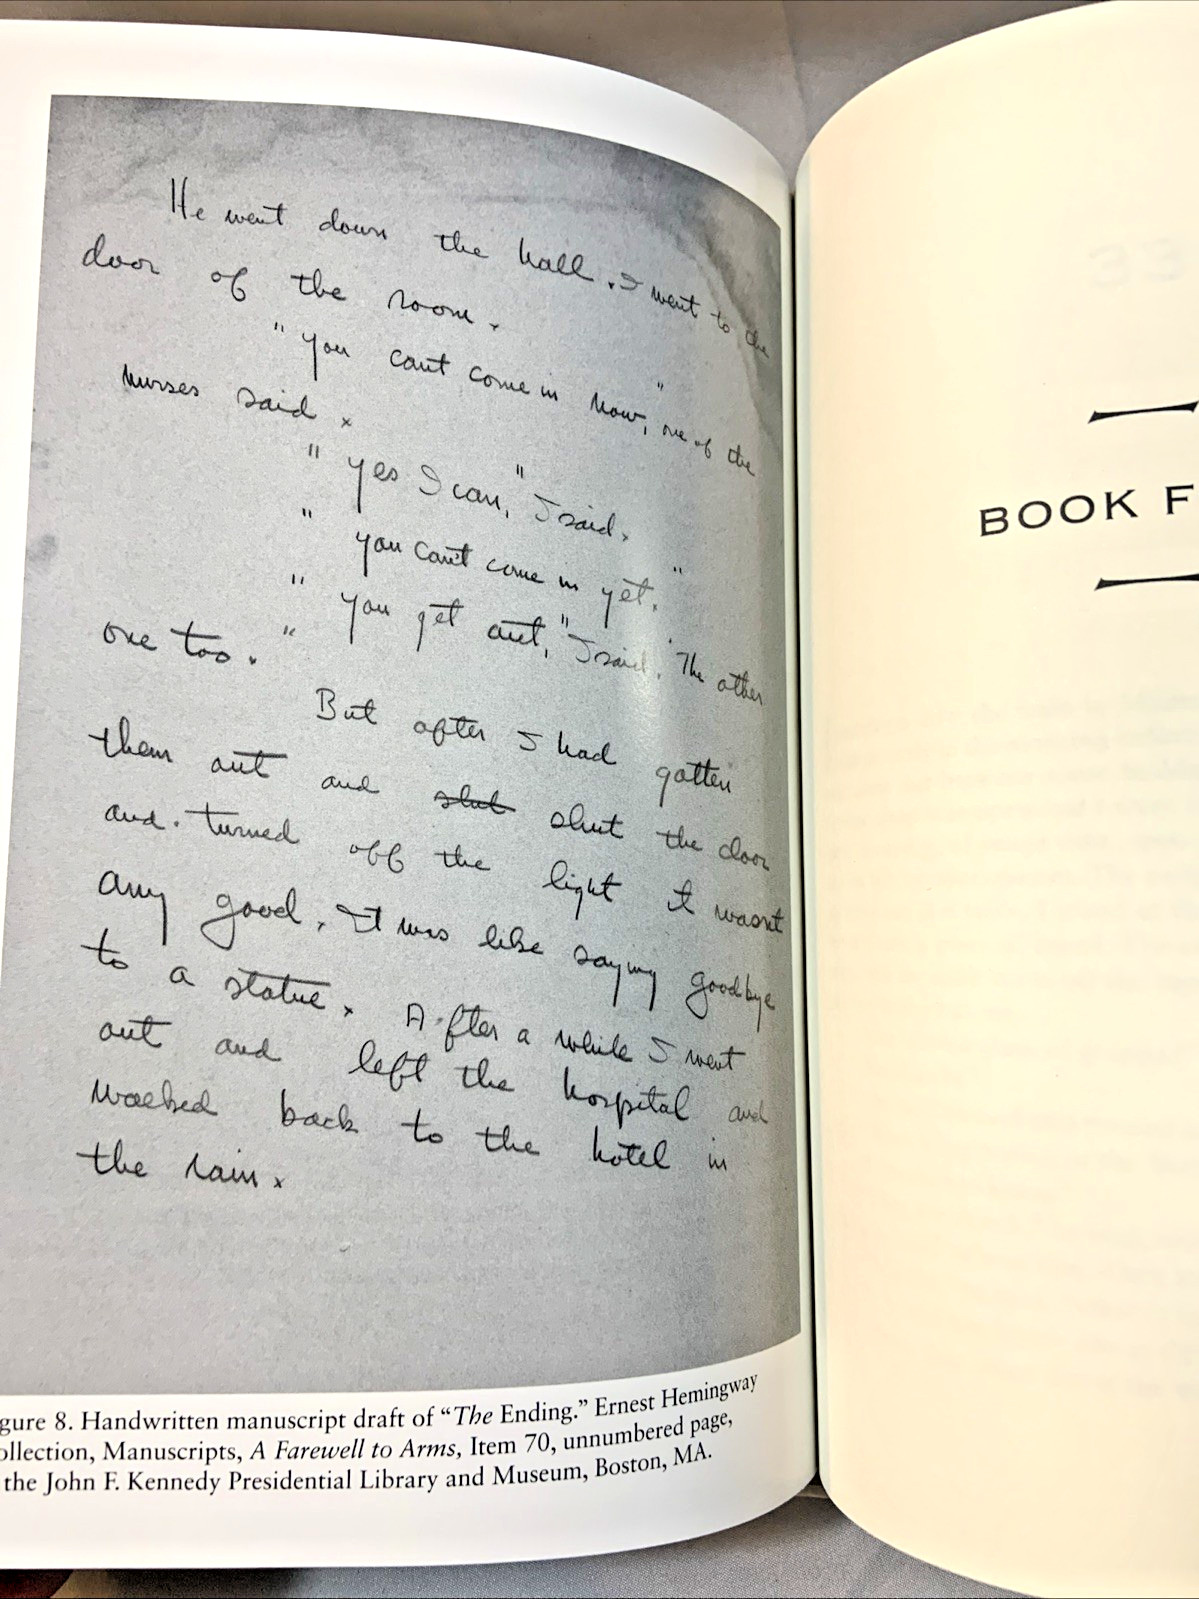 He went down the hall. I went to the
door of the room.
"You cant come in now," one of the
nurses said.
"Yes I can," I said.
"You can't come in yet."
"You get out," I said. "The other
one too."
But after I had gotten
them out and shut shut the door
and turned off the light it wasnt
any good. It was like saying goodbye
to a statue. After a while I went
out and left the hospital and
walked back to the hotel in
the rain.
gure 8. Handwritten manuscript draft of "The Ending." Ernest Hemingway
ollection, Manuscripts, A Farewell to Arms, Item 70, unnumbered page,
the John F. Kennedy Presidential Library and Museum, Boston, MA.
33
BOOK F